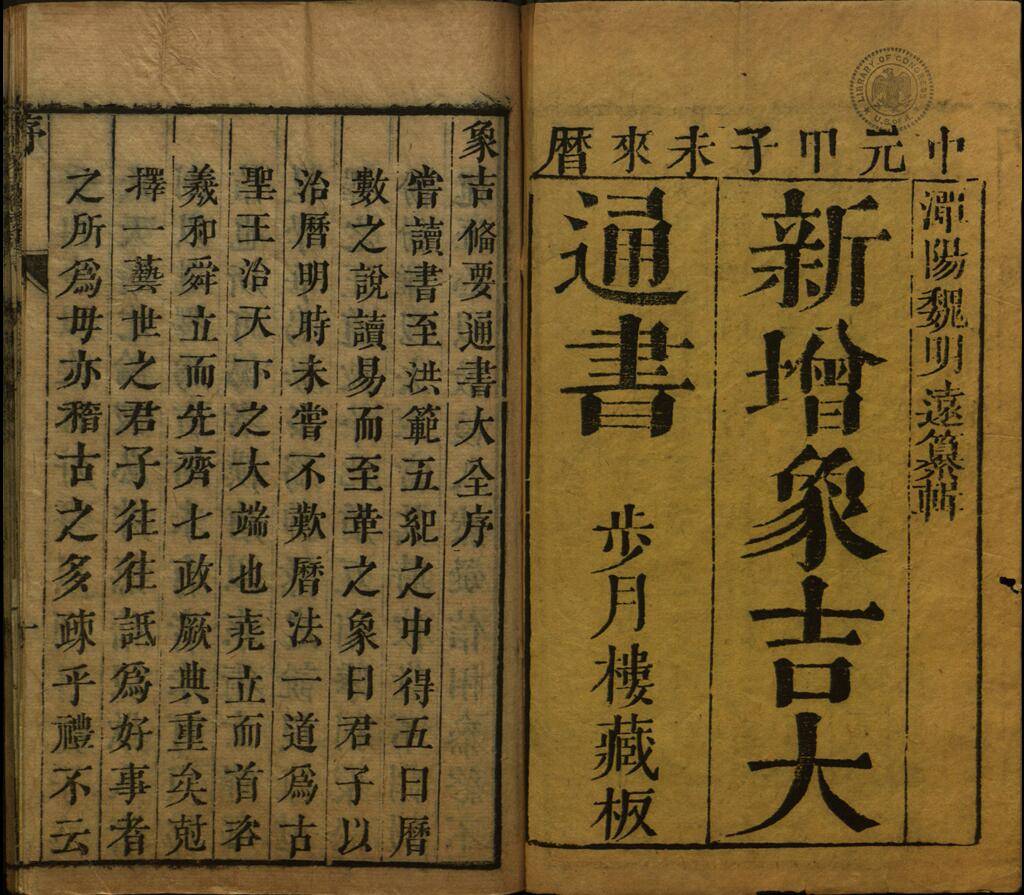 中元甲子未來曆
潭陽魏明遠纂輯
新增象吉大
通書
步月樓藏板
LIBRARY OF CONGRESS
U.S. of A.
象吉俻要通書大全序
嘗讀書至洪範五紀之中得五曰曆
數之說讀易而至革之象曰君子以
治曆明時未嘗不歎曆法一道爲古
聖王治天下之大端也堯立而首咨
羲和舜立而先齊七政厥典重矣尅
擇一藝世之君子往往詆爲好事者
之所爲毋亦稽古之多疎乎禮不云
序
一